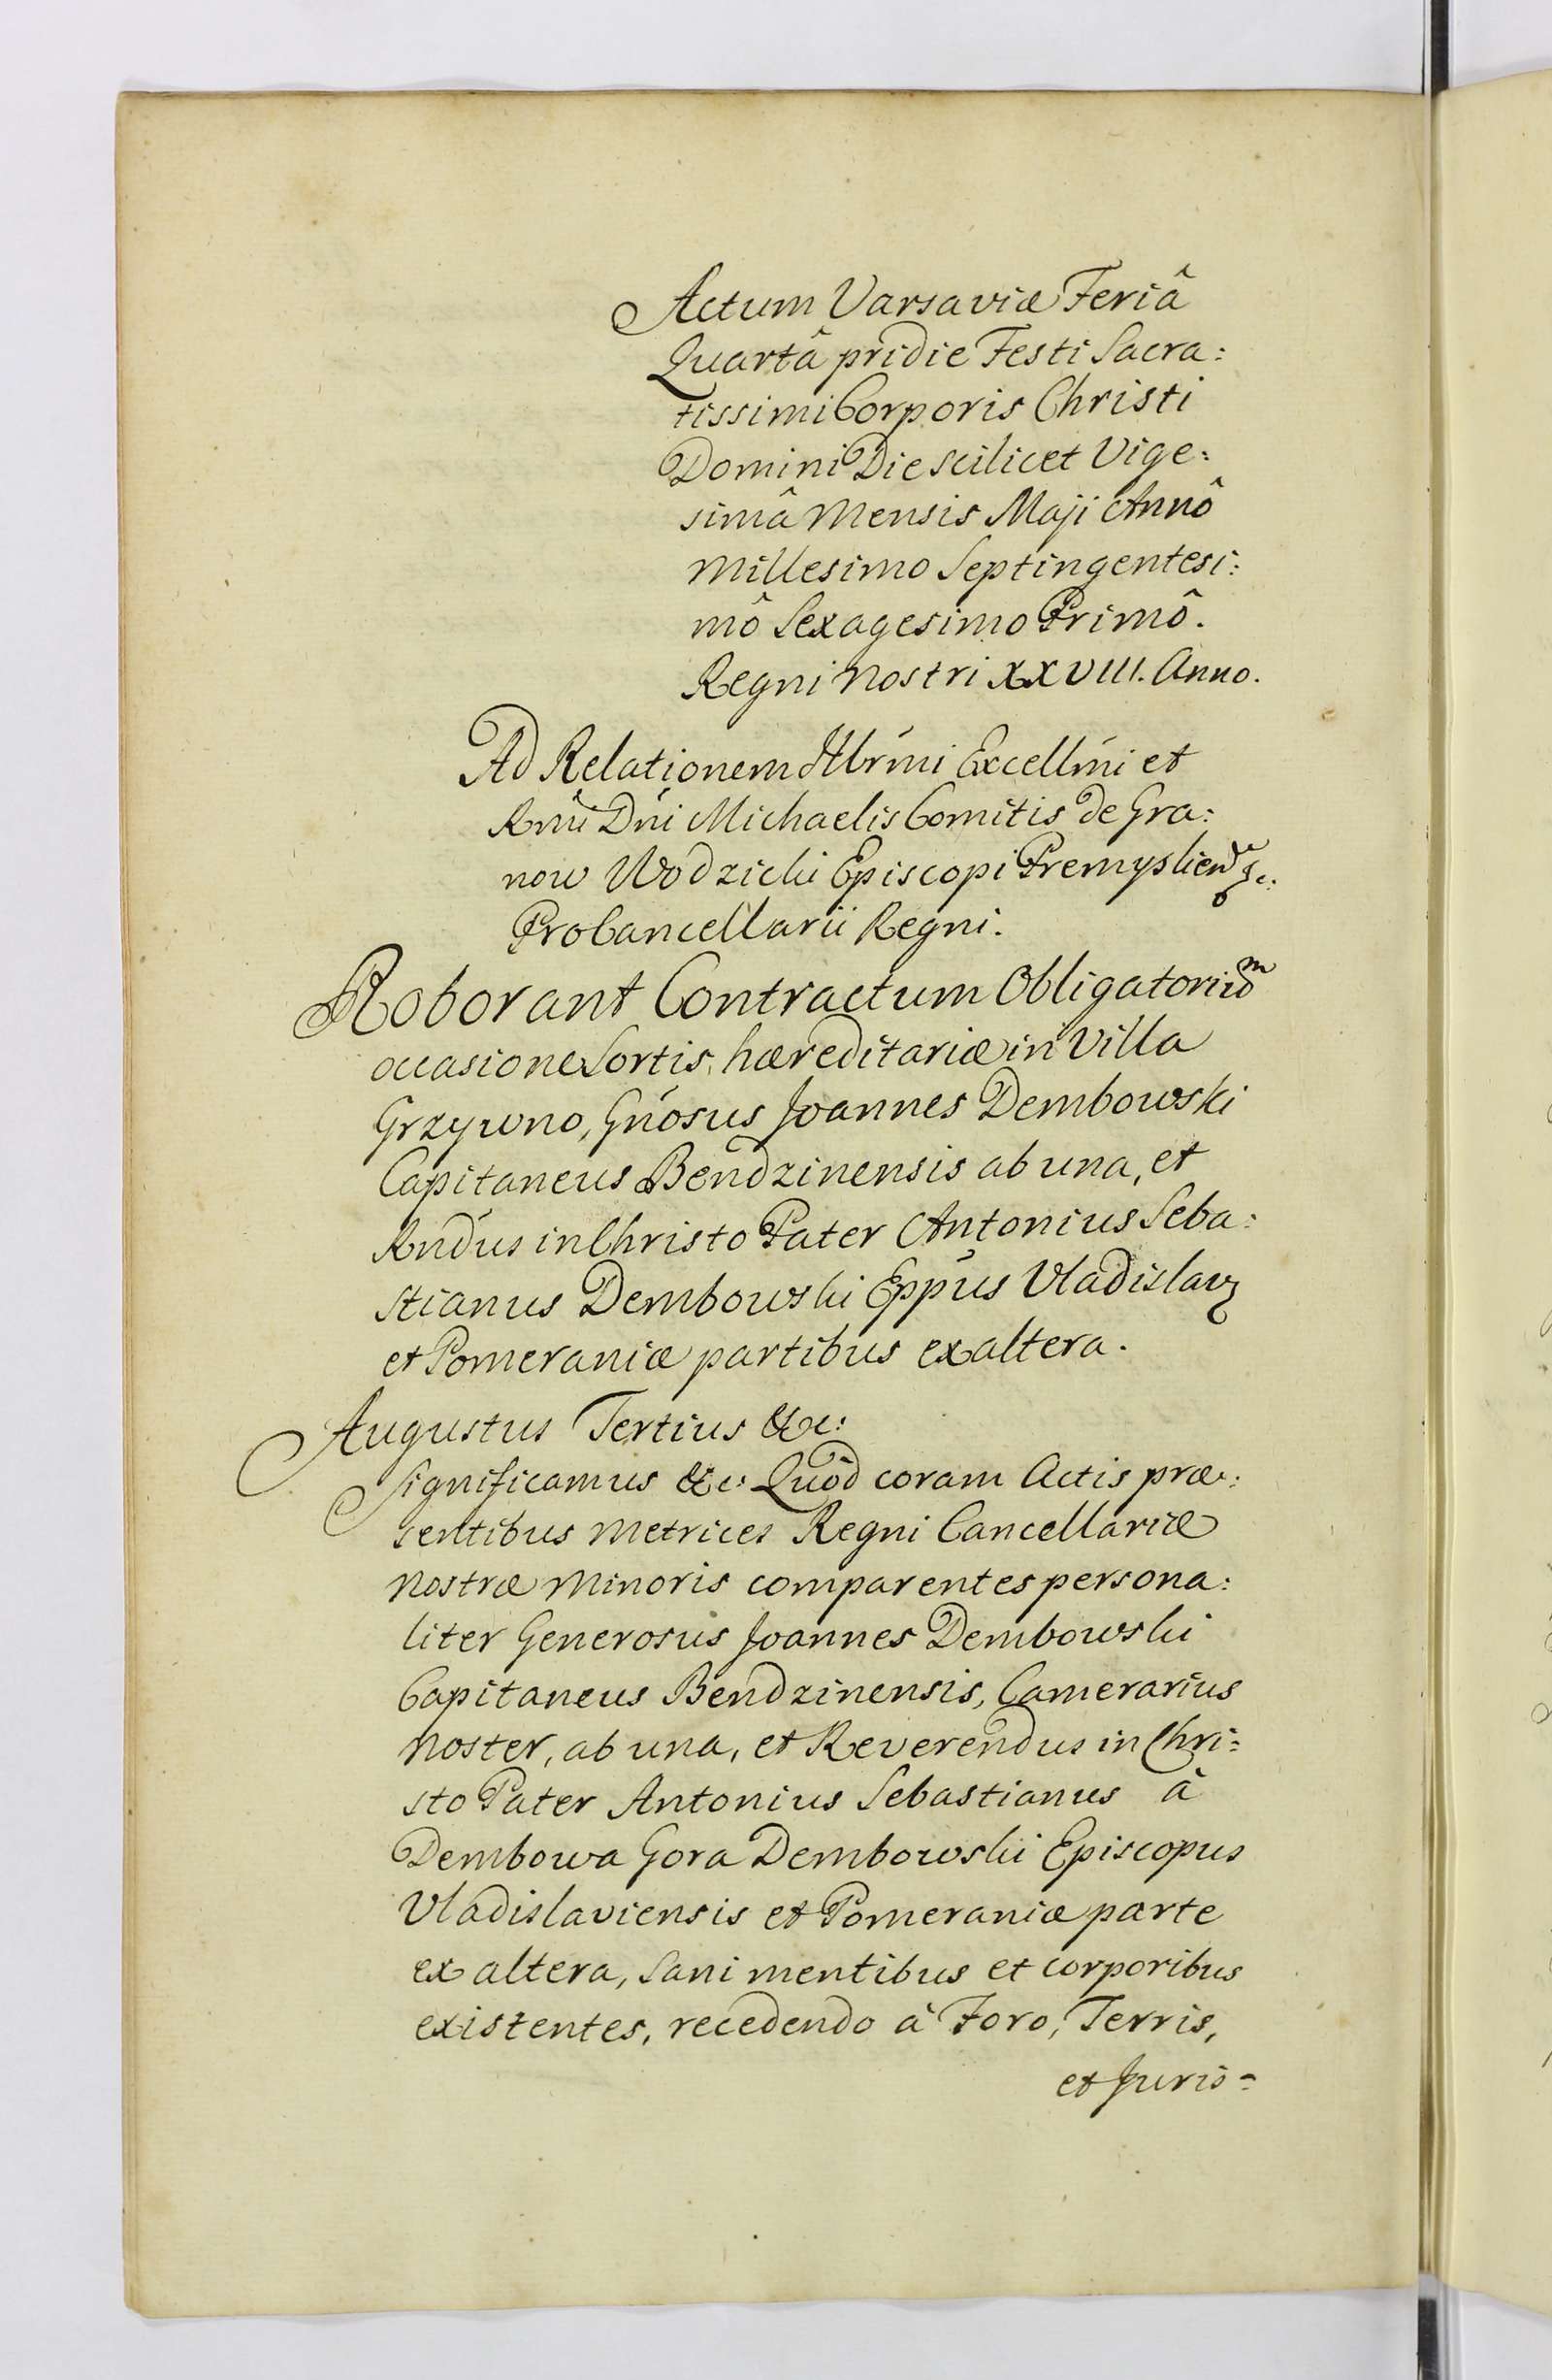 Actum Varsaviæ Feriâ
Quartâ pridie Festi Sacra:
tissimi Corporis Christi
Domini Die scilicet Vige:
simâ Mensis Maji Annô
Millesimo Septingentesi:
mô Sexagesimo Primô.
Regni Nostri XXVIII. Anno.
Ad Relationem Illrmi Excellmi et
Rmi Dni Michaelis Comitis de Gra:
now Wodzicki Episcopi Premyslien &c:
ProCancellarii Regni.
Roborant Contractum Obligatorium
occasione Sortis hæreditariæ in Villa
Grzywno, Gnosus Joannes Dembowski
Capitaneus Bendzinensis ab una, et
Rndus in Christo Pater Antonius Seba:
stianus Dembowski Eppus Vladislav
et Pomeraniæ partibus ex altera.
Augustus Tertius &c:
Significamus &c: Quôd coram Actis præ:
sentibus Metrices Regni Cancellariæ
Nostræ Minoris comparentes persona:
liter Generosus Joannes Dembowski
Capitaneus Bendzinensis, Camerarius
Noster, ab una, et Reverendus in Chri:
sto Pater Antonius Sebastianus â
Dembowa Gora Dembowski Episcopus
Vladislaviensis et Pomeraniæ parte
ex altera, sani mentibus et corporibus
existentes, recedendo à Foro, Terris,
et Juris=